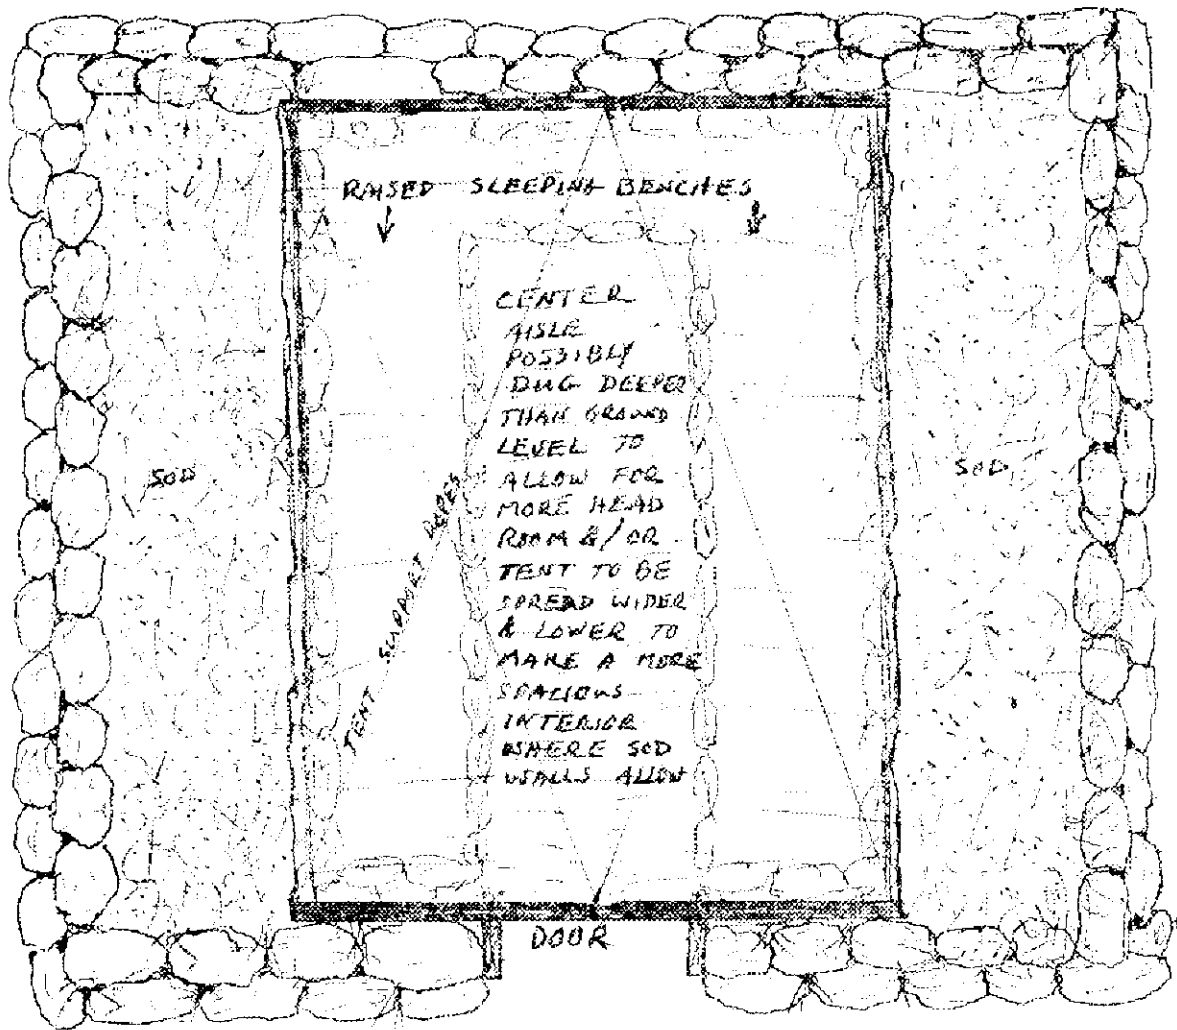 RAISED SLEEPING BENCHES
CENTER
AISLE
POSSIBLY
DUG DEEPER
THAN GROUND
LEVEL TO
ALLOW FOR
MORE HEAD
ROOM &/OR
TENT TO BE
SPREAD WIDER
& LOWER TO
MAKE A MORE
SPACIOUS
INTERIOR
WHERE SOD
WALLS ALLOW
SOD
TENT SUPPORT ROPES
SOD
DOOR